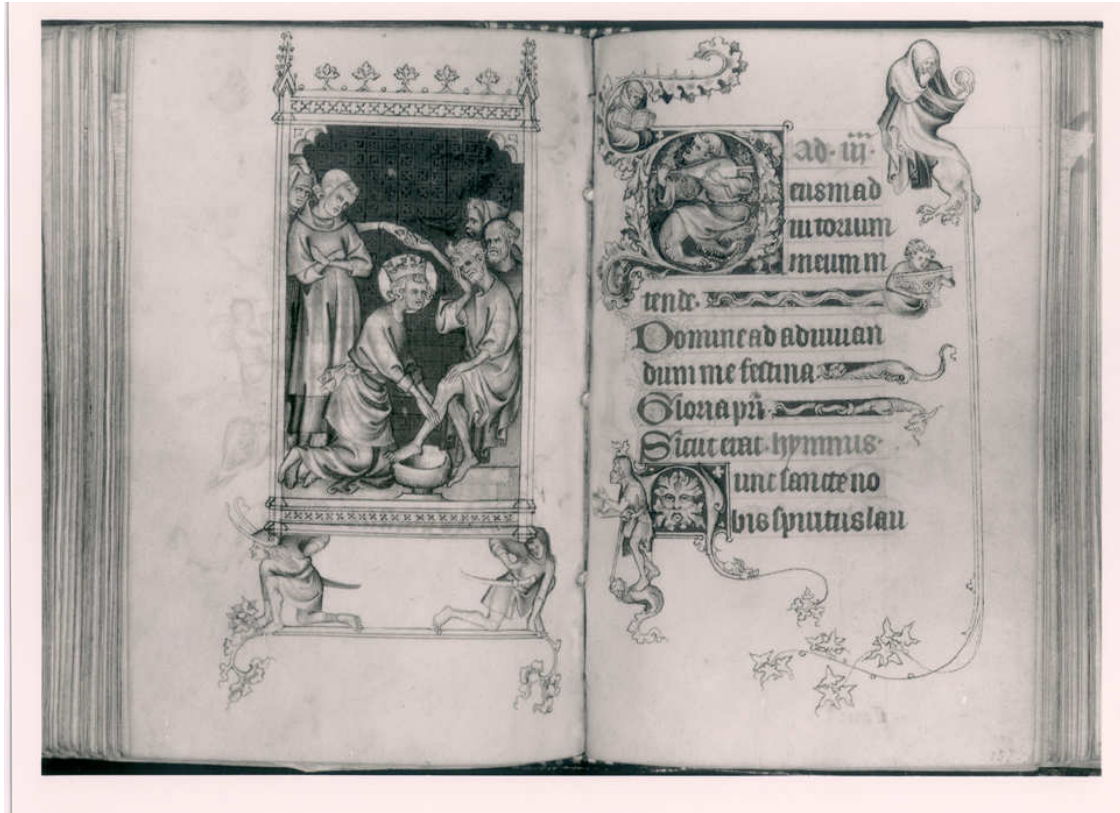 ad· iij·
Deus in ad
iutorium
meum in
tende·
Domine ad adiuuan
dum me festina·
Gloria pri
Sicut erat· hymnus·
Nunc sancte no
bis spiritus lau